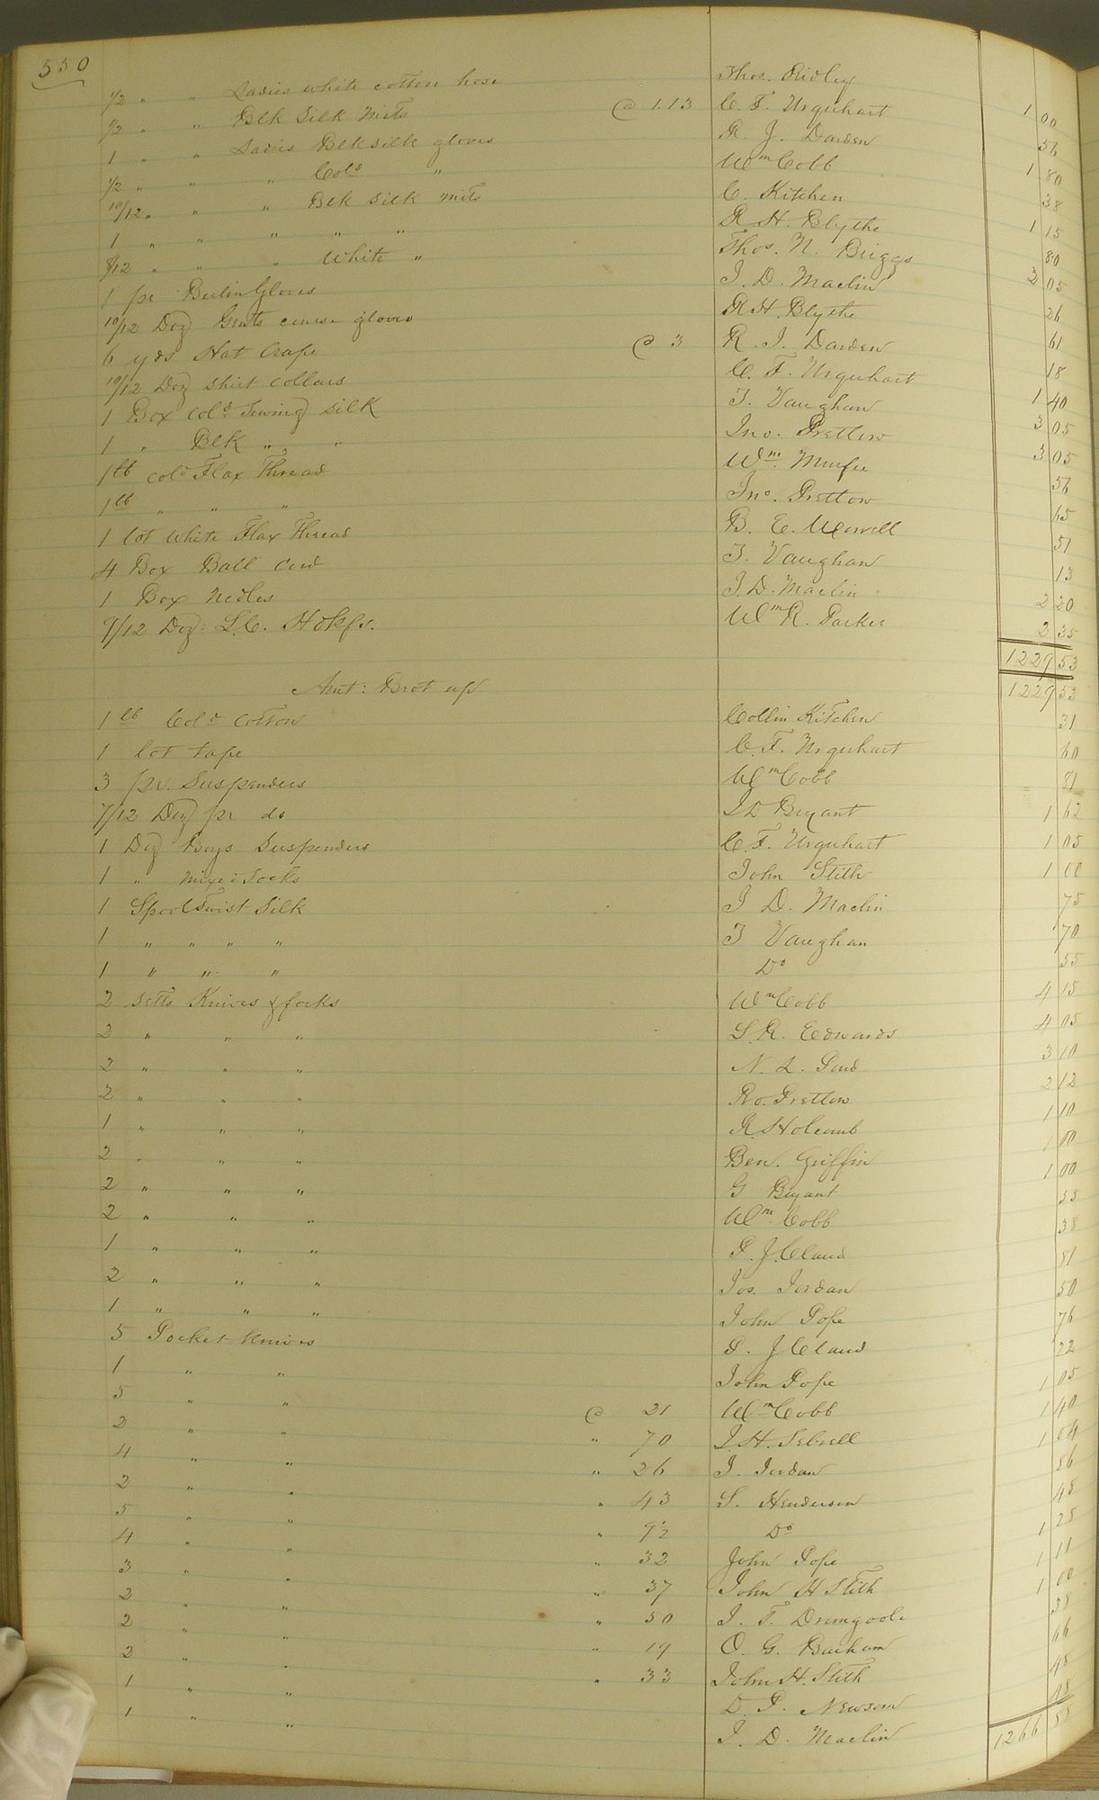 550
1/2 " " Ladies white cotton hose Thos. Ridley 1 00
1/2 " " Blk Silk Mits @ 1.13 C. F. Urquhart 56
1 " " Ladies Blk silk gloves R. J. Darden 1 80
1/2 " " " Cold " Wm Cobb 38
10/12 " " " Blk Silk mits C. Kitchen 1 15
1 " " " " " R. H. Blythe 80
9/12 " " " White " Thos. N. Briggs 2 05
1 pr Berlin Gloves J. D. Maclin 26
10/12 Doz Gents course gloves R H. Blythe 61
6 yds Hat Crape @ 3 R. J. Darden 18
10/12 Doz shirt collars C. F. Urquhart 1 40
1 Box cold Sewing silk T. Vaughan 3 05
1 " Blk " " Jno. Pretlow 3 05
1 lb cold Flax Thread Wm. Murfee 56
1 lb " " " Jno. Pretlow 65
1 lot white Flax Thread B. E. Worrell 51
4 Box Ball Cord T. Vaughan 13
1 Box Nedles J. D. Maclin 2 20
9/12 Doz: L.C. Hdkfs. Wm R. Parker 2 35
1229 53
Amt: Brot up 1229 53
1 lb Cold Cotton Collin Kitchen 31
1 lot tape C. F. Urquhart 60
3 pr. Suspenders Wm Cobb 81
7/12 Doz pr do J D Bryant 1 62
1 Doz Boys Suspenders C. F. Urquhart 1 05
1 " mixed Socks John Stith 1 00
1 Spool Twist Silk J D. Maclin 75
1 " " " " T Vaughan 70
1 " " " Do 55
2 setts Knives & forks Wm Cobb 4 15
2 " " " S. R. Edwards 4 05
2 " " " N. L. Pond 3 10
2 " " " Ro. Pretlow 2 12
1 " " " R Holcomb 1 10
2 " " " Ben. Griffin 1 00
2 " " " G Bryant 1 00
2 " " " Wm. Cobb 55
1 " " " P. J. Claud 38
2 " " " Jos. Jordan 81
1 " " " John Pope 50
5 Pocket Knives P. J Claud 76
1 " " John Pope 22
5 " " @ 21 Wm Cobb 1 05
2 " " " 70 J. H. Sebrell 1 40
4 " " " 26 J. Jordan 1 04
2 " " " 43 S. Henderson 86
5 " " " 9½ Do 48
4 " " " 32 John Pope 1 28
3 " " " 37 John H Stith 1 11
2 " " " 50 J. T. Dromgoole 1 00
2 " " " 19 O. G. Barham 38
2 " " " 33 John H. Stith 66
1 " " D. P. Newsom 48
1 " " J. D. Maclin 48
1266 55